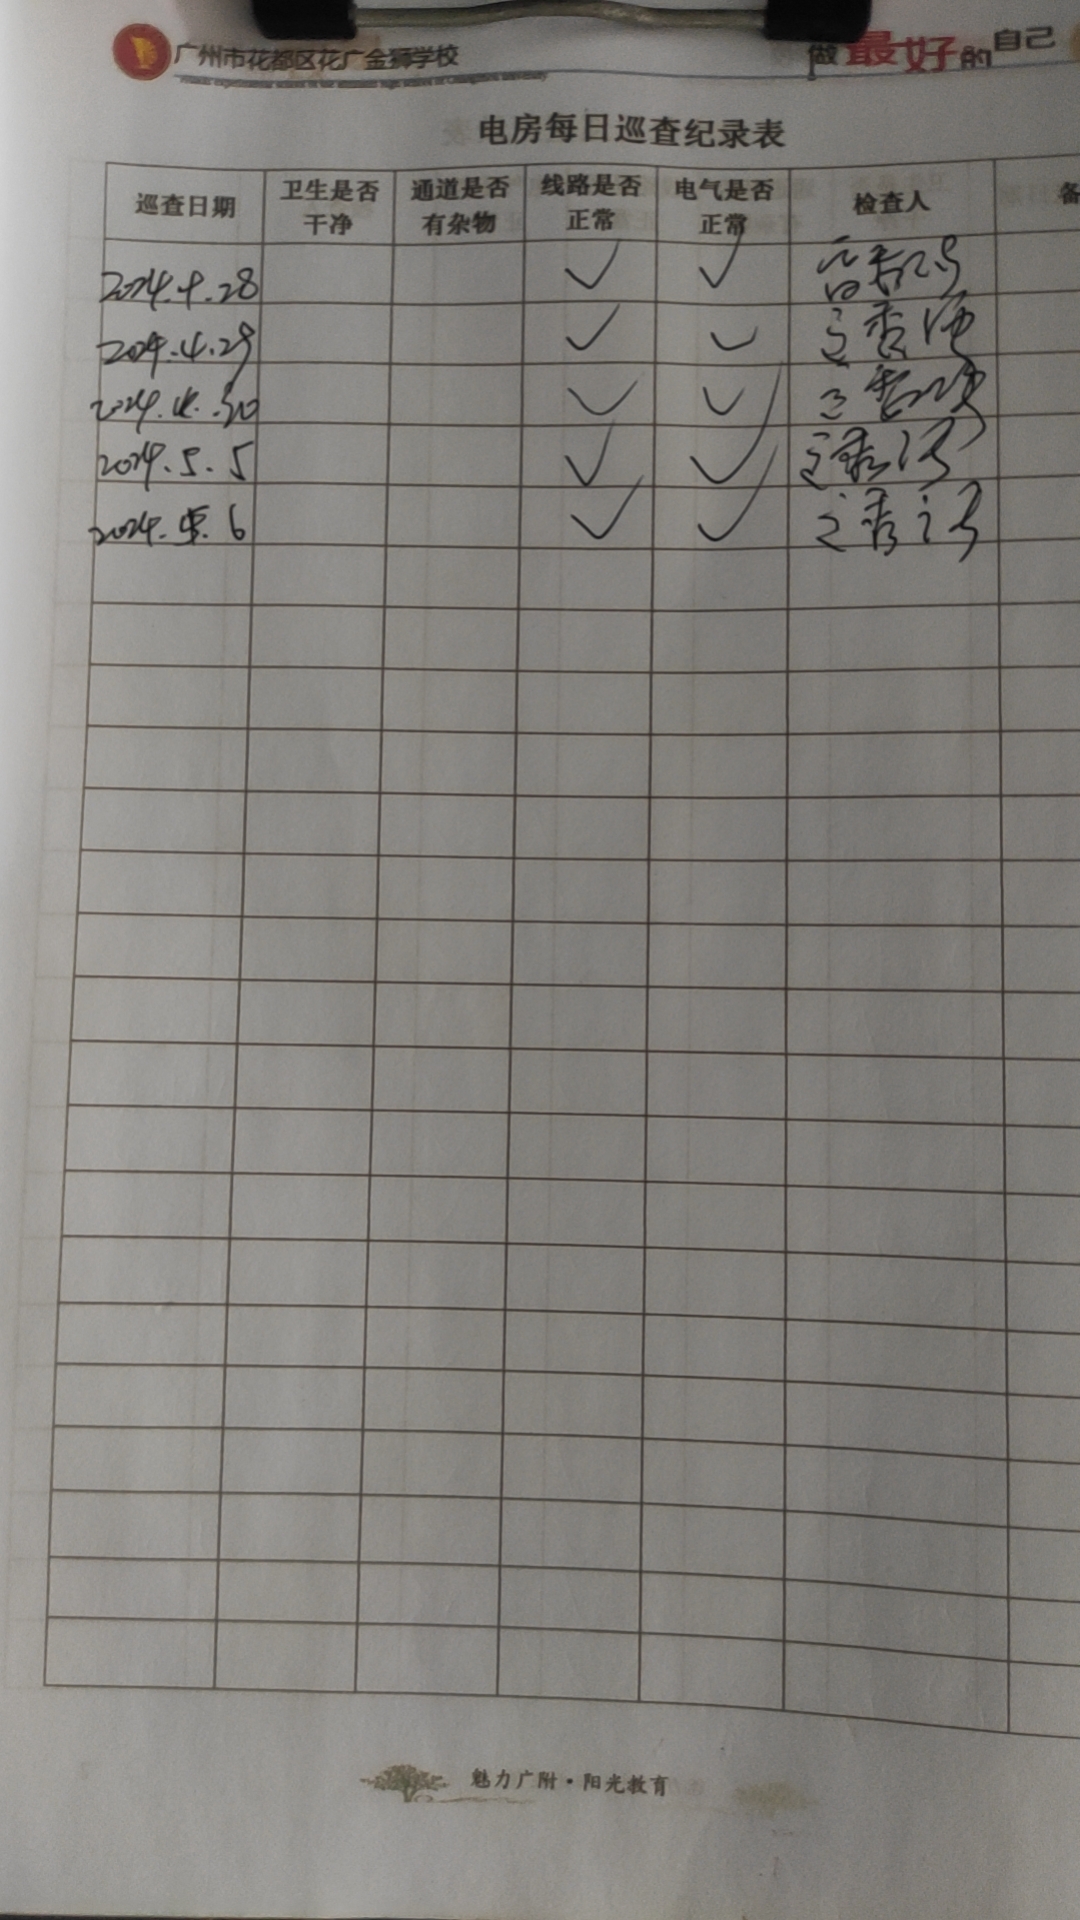 广州市花都区花广金狮学校
做最好的自己
电房每日巡查纪录表
巡查日期 卫生是否干净 通道是否有杂物 线路是否正常 电气是否正常 检查人 备
2024.4.28 ✓ ✓
2024.4.29 ✓ ✓
2024.4.30 ✓ ✓
2024.5.5 ✓ ✓
2024.5.6 ✓ ✓
魅力广附·阳光教育